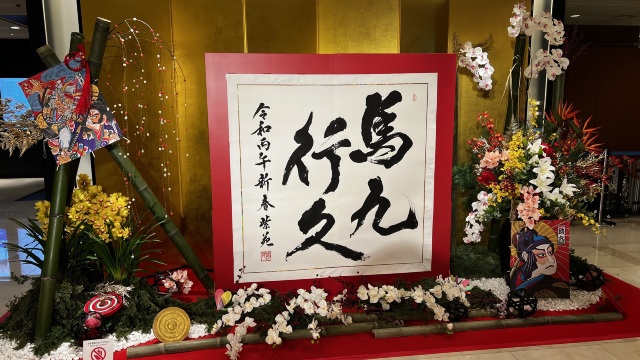 馬九
行久
令和丙午新春紫苑